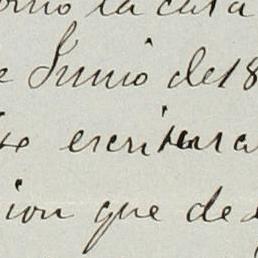 la casa
Junio de 18
escritura
ion que de